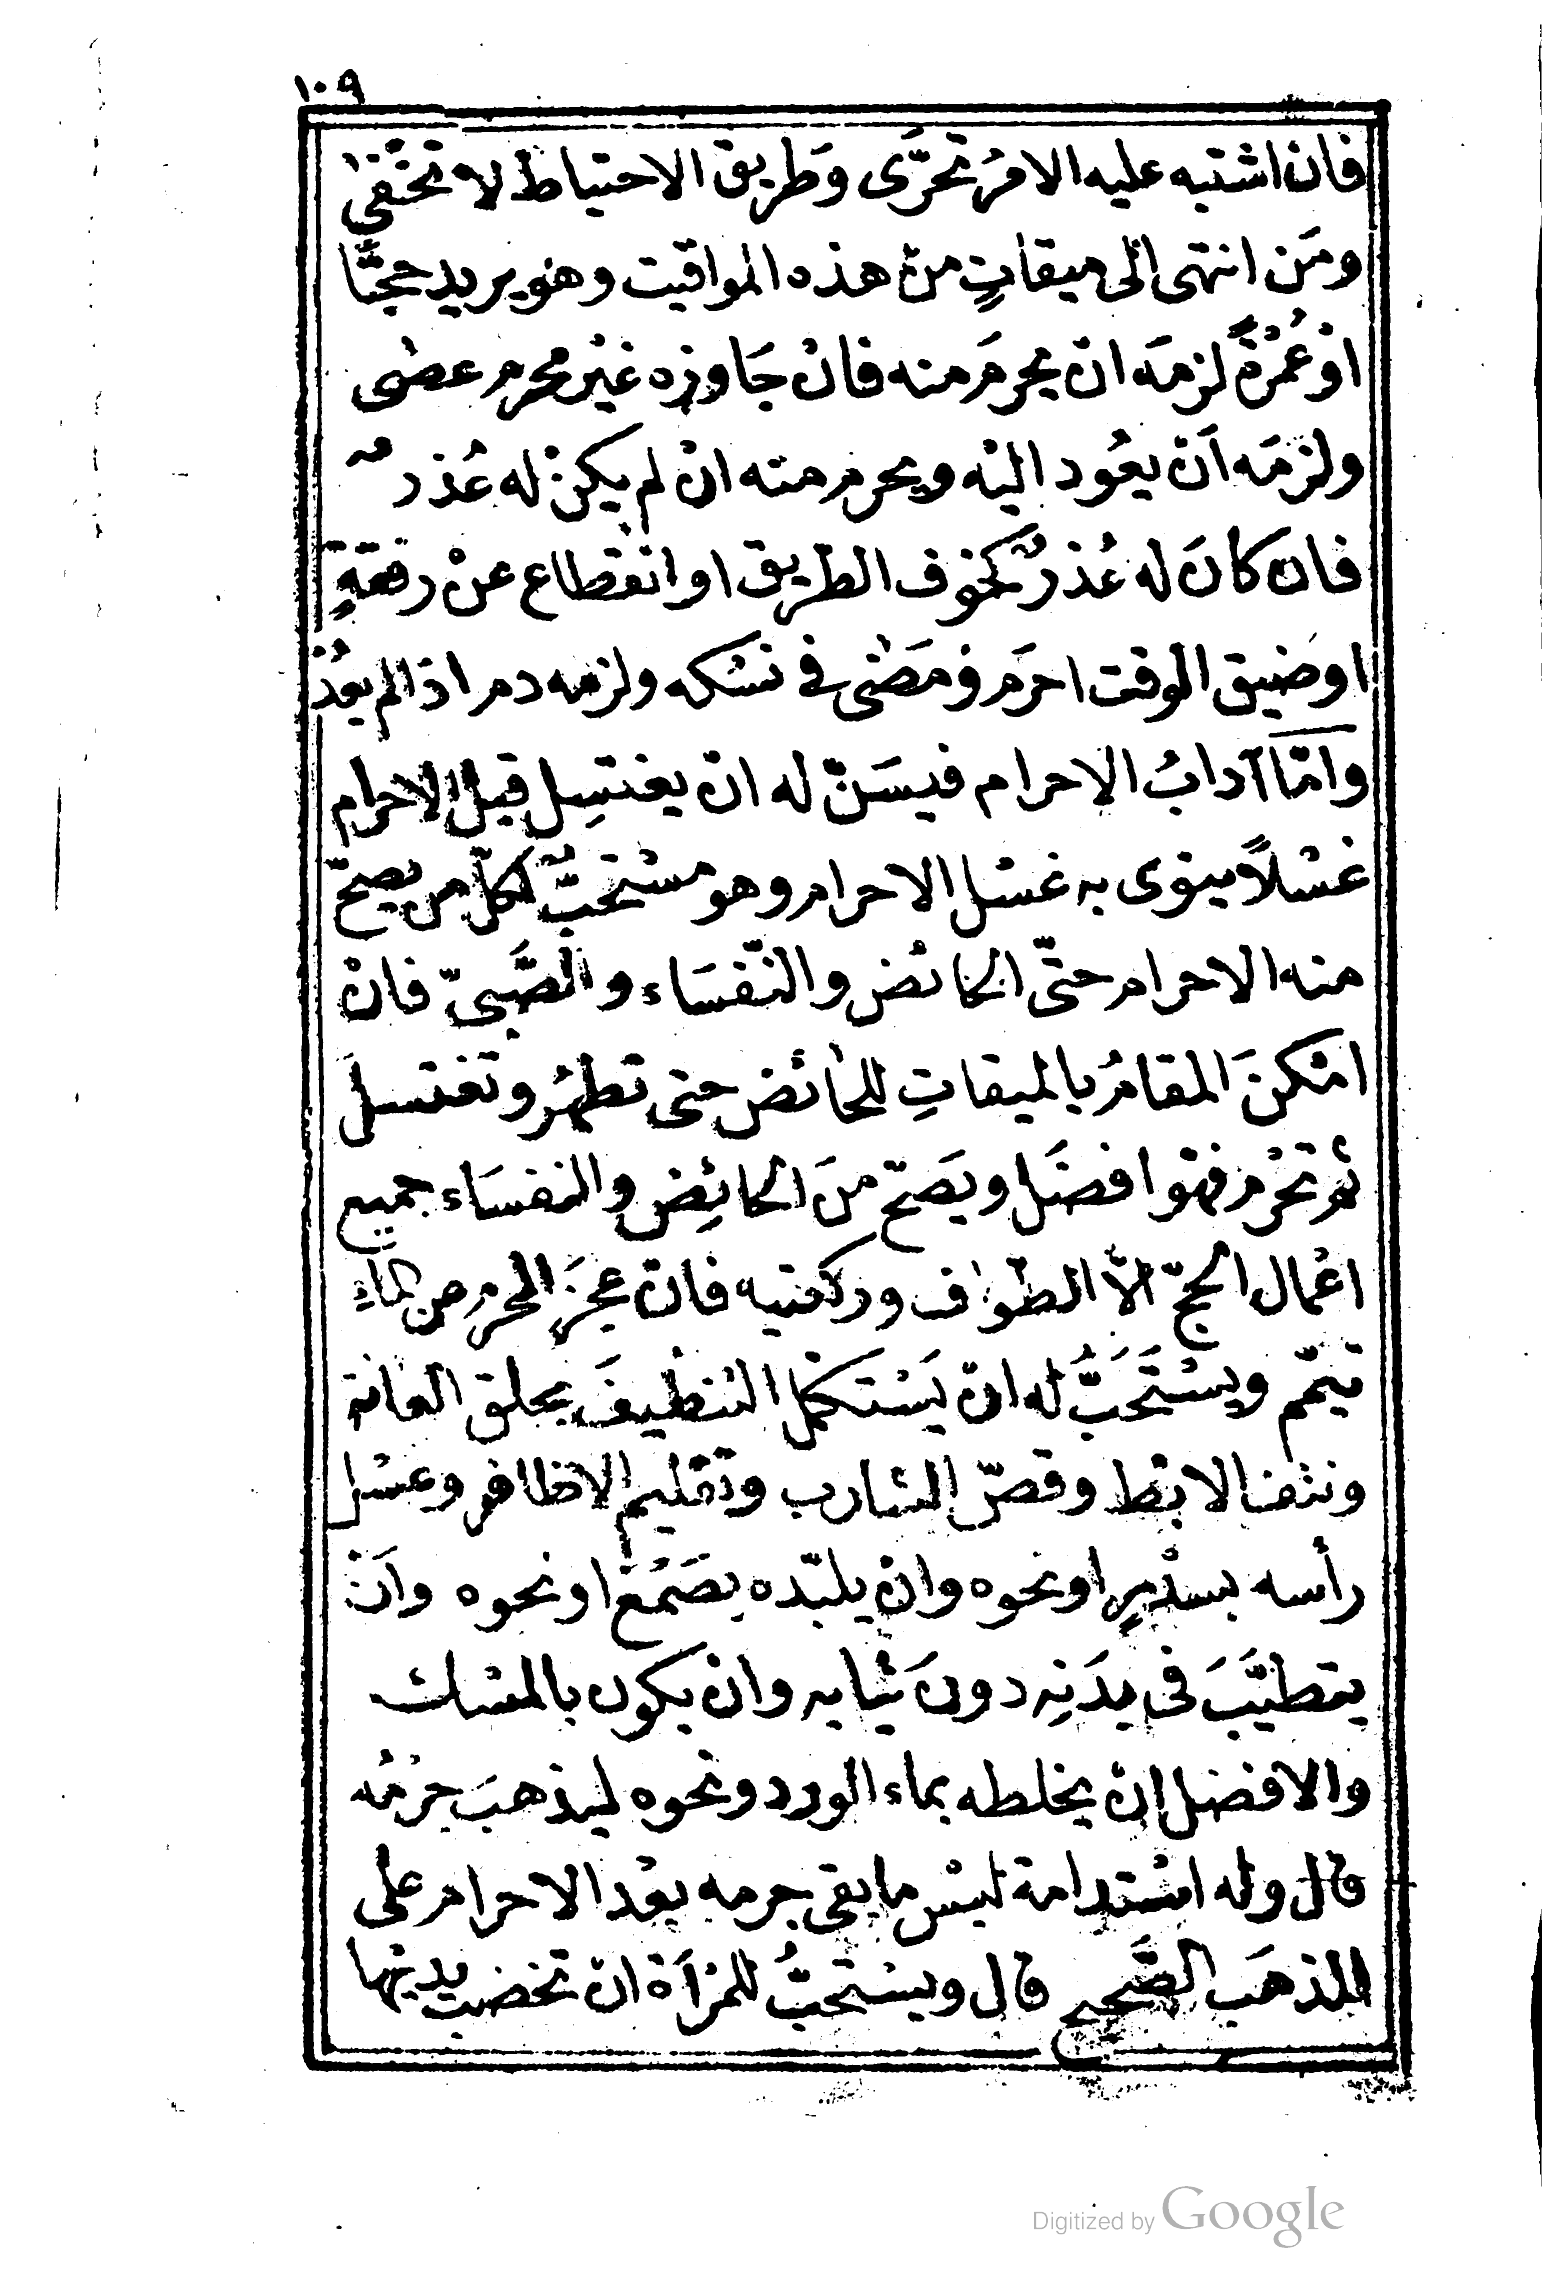 ١٠٩
فان اشتبه عليه الامرُ تحرَّى وَطريق الاحتياط لا تخفى
ومَن انتهى الى ميقاتٍ منْ هذه المواقيت وهو يريد حجًّا
اوْ عُمْرَةً لزمَه انْ يحرمَ منه فانْ جَاوزه غيْر محرم عصٰى
ولزمَه اَنْ يعُود اليْه ويحرم منه انْ لم يكنْ له عُذرٌ
فان كانَ له عُذرٌ كخوف الطريق او انقطاع عنْ رفقةٍ
اوضيق الوقت احرَم ومَضٰى في نسُكه ولزمه دم اذا لم يعُدْ
وامّا آدابُ الاحرام فيسَنّ له انْ يغتسِل قبل الاحرام
غسْلاً ينوى به غسْل الاحرام وهو مسْتحَبٌّ لكلّ من يصحّ
منه الاحرام حتّى الحائض والنّفسَاء والصَّبىّ فانْ
امْكنَ المقامُ بالميقاتِ للحائض حتى تطهُر وتغتسلَ
ثم تحْرم فهْو افضَل ويَصَحّ منَ الحائِض والنفسَاء جميع
اعْمال الحجّ الاّ الطّواف وركعتيه فانْ عجَز المحرم عن الماءِ
تيمّم ويسْتَحَبُّ له انْ يَسْتكمل التنظيفَ بحلق العانة
ونتف الابْط وقصّ الشارب وتقليم الاظافر وغسْل
رأسه بسدْرٍ اونحوه وانْ يلبّده بصَمْغ اونحوه وَاَنْ
يتطيَّبَ فى بدَنِه دونَ ثيابه وانْ يكون بالمسْك
والافضل انْ يخلطه بماء الورد ونحوه ليذهبَ جرْمُه
قال وله اسْتدامة لبْس ما بقى جرمه بعْد الاحرام على
المذهَب الصَّحيح قال ويسْتحبُّ للمرْاَة انْ تخضب يديْها
Digitized by Google